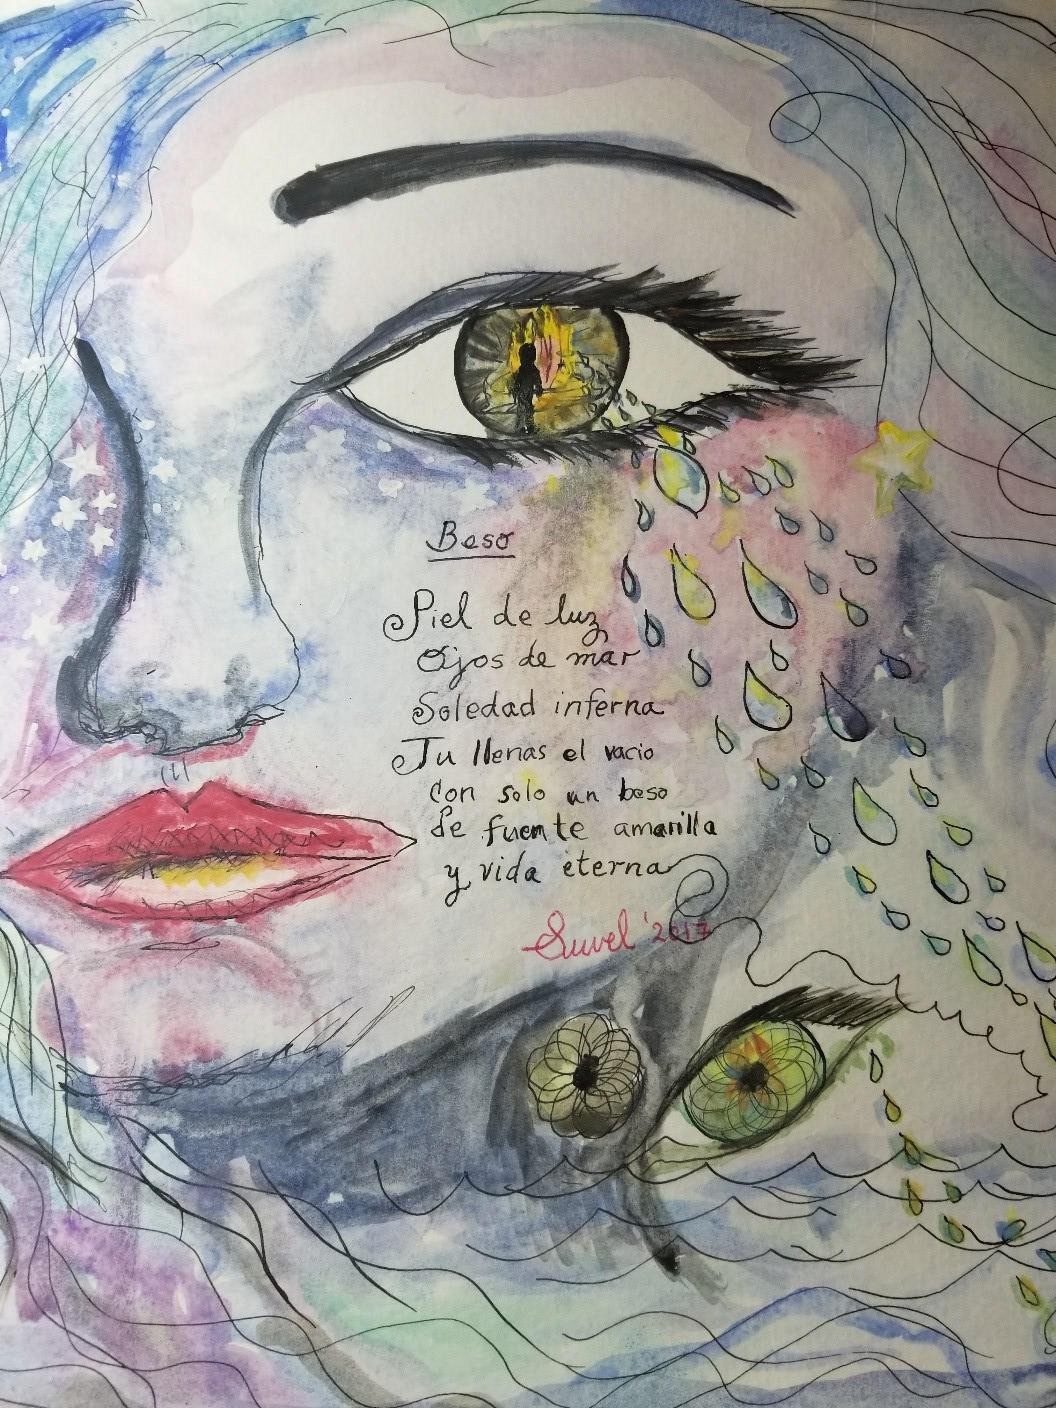 Beso
Piel de luz
Ojos de mar
Soledad inferna
Tu llenas el vacio
Con solo un beso
de fuente amarilla
y vida eterna
Suvel '2017